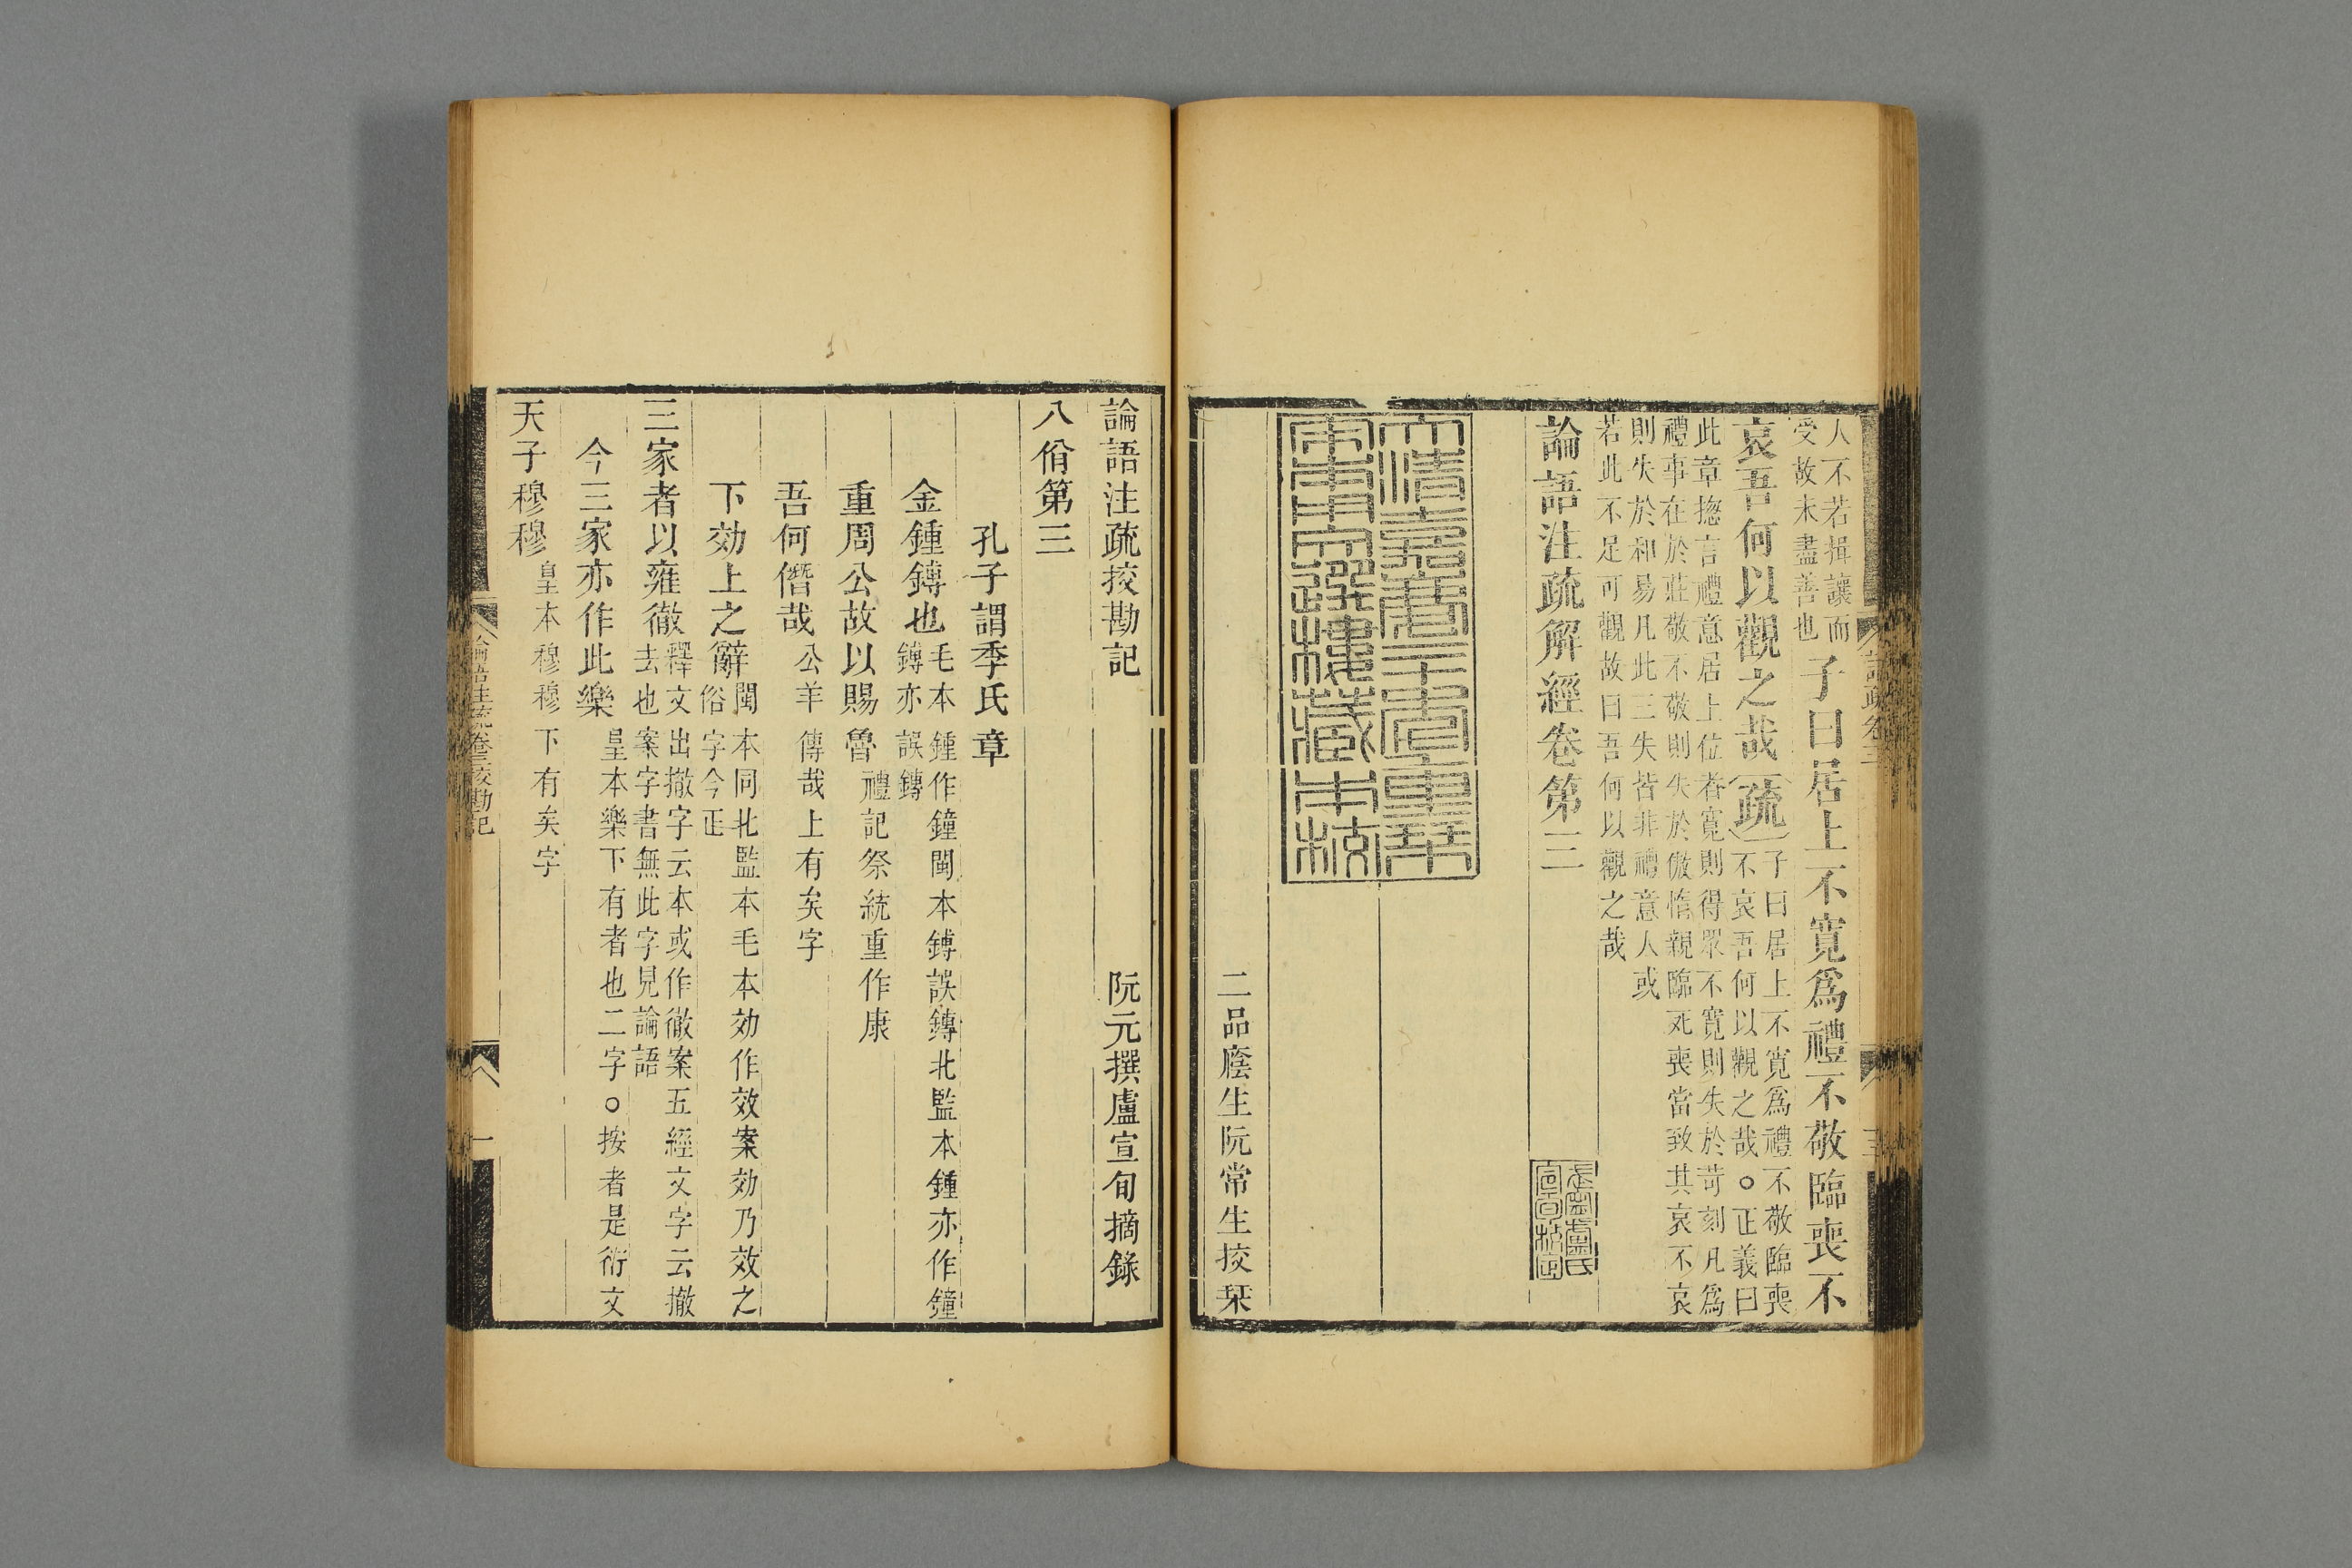 人不若揖讓而
受故未盡善也
子曰居上不寬爲禮不敬臨喪不
哀吾何以觀之哉疏
子曰居上不寬爲禮不敬臨喪
不哀吾何以觀之哉○正義曰
此章揔言禮意居上位者寬則得眾不寬則失於苛刻凡爲
禮事在於莊敬不敬則失於傲惰親臨死喪當致其哀不哀
則失於和易凡此三失皆非禮意人或
若此不足可觀故曰吾何以觀之哉
論語注疏解經卷第三
盧氏
宣旬校定
大清嘉慶二十年重栞
宋本用文選樓藏本校
二品廕生阮常生挍栞
論語注疏挍勘記 阮元撰盧宣旬摘錄
八佾第三
孔子謂季氏章
金鍾鏄也
毛本鍾作鐘閩本鏄誤鏄北監本鍾亦作鐘
鏄亦誤鏄
重周公故以賜魯 禮記祭統重作康
吾何僭哉 公羊傳哉上有矣字
下効上之辭
閩本同北監本毛本効作效案効乃效之
俗字今正
三家者以雍徹
釋文出撤字云本或作徹案五經文字云撤
去也案字書無此字見論語
今三家亦作此樂 皇本樂下有者也二字○按者是衍文
天子穆穆 皇本穆穆下有矣字
論語注疏卷三挍勘記 一